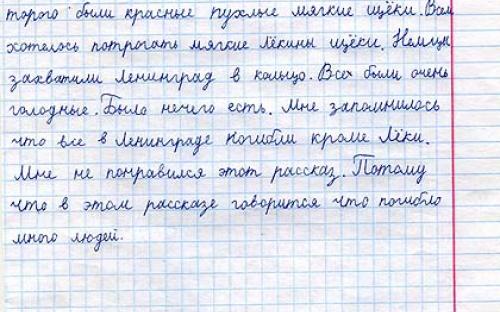 торого были красные пухлые мягкие щёки. Всем
хотелось потрогать мягкие Лёкины щёки. Немцы
захватили Ленинград в кольцо. Все были очень
голодные. Было нечего есть. Мне запомнилось
что все в Ленинграде погибли кроме Лёки.
Мне не понравился этот рассказ. Потому
что в этом рассказе говорится что погибло
много людей.